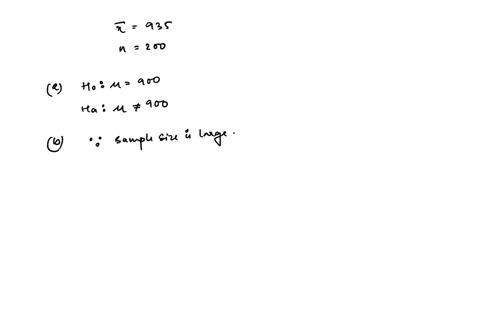 x̄ = 935
n = 200
(a) H₀: μ = 900
Ha: μ ≠ 900
(b) ∵ sample size is large.